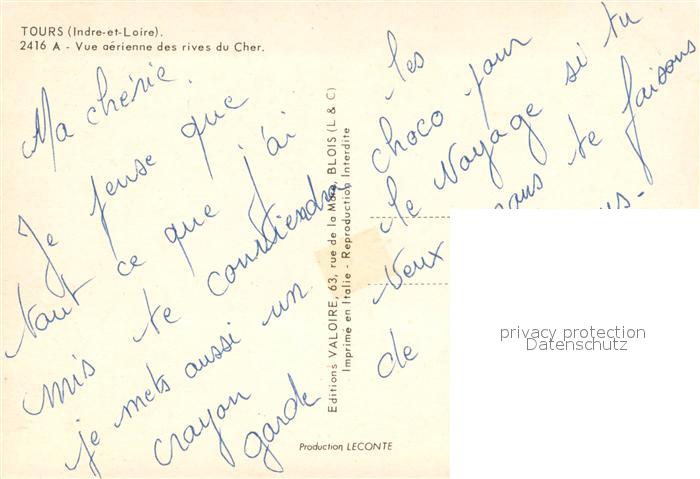 TOURS (Indre-et-Loire).
2416 A - Vue aérienne des rives du Cher.
Ma chérie.
Je pense que
tout ce que j'ai
mis te conviendra,
je mets aussi un
crayon
garde
les
choco pour
le voyage si tu
veux
te faisons
de
Editions VALOIRE, 63, rue de la Mare, BLOIS (L & C)
Imprimé en Italie - Reproduction Interdite
Production LECONTE
privacy protection
Datenschutz